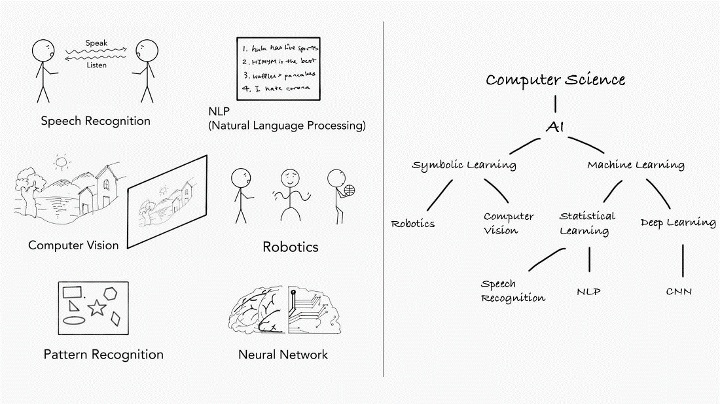 Speak
Listen
Speech Recognition
1. hulu has live sports
2. HIMYM is the best
3. waffles > pancakes
4. I hate corona
NLP
(Natural Language Processing)
Computer Vision
Robotics
Pattern Recognition
Neural Network
Computer Science
AI
Symbolic Learning
Machine Learning
Robotics
Computer
Vision
Statistical
Learning
Deep Learning
Speech
Recognition
NLP
CNN